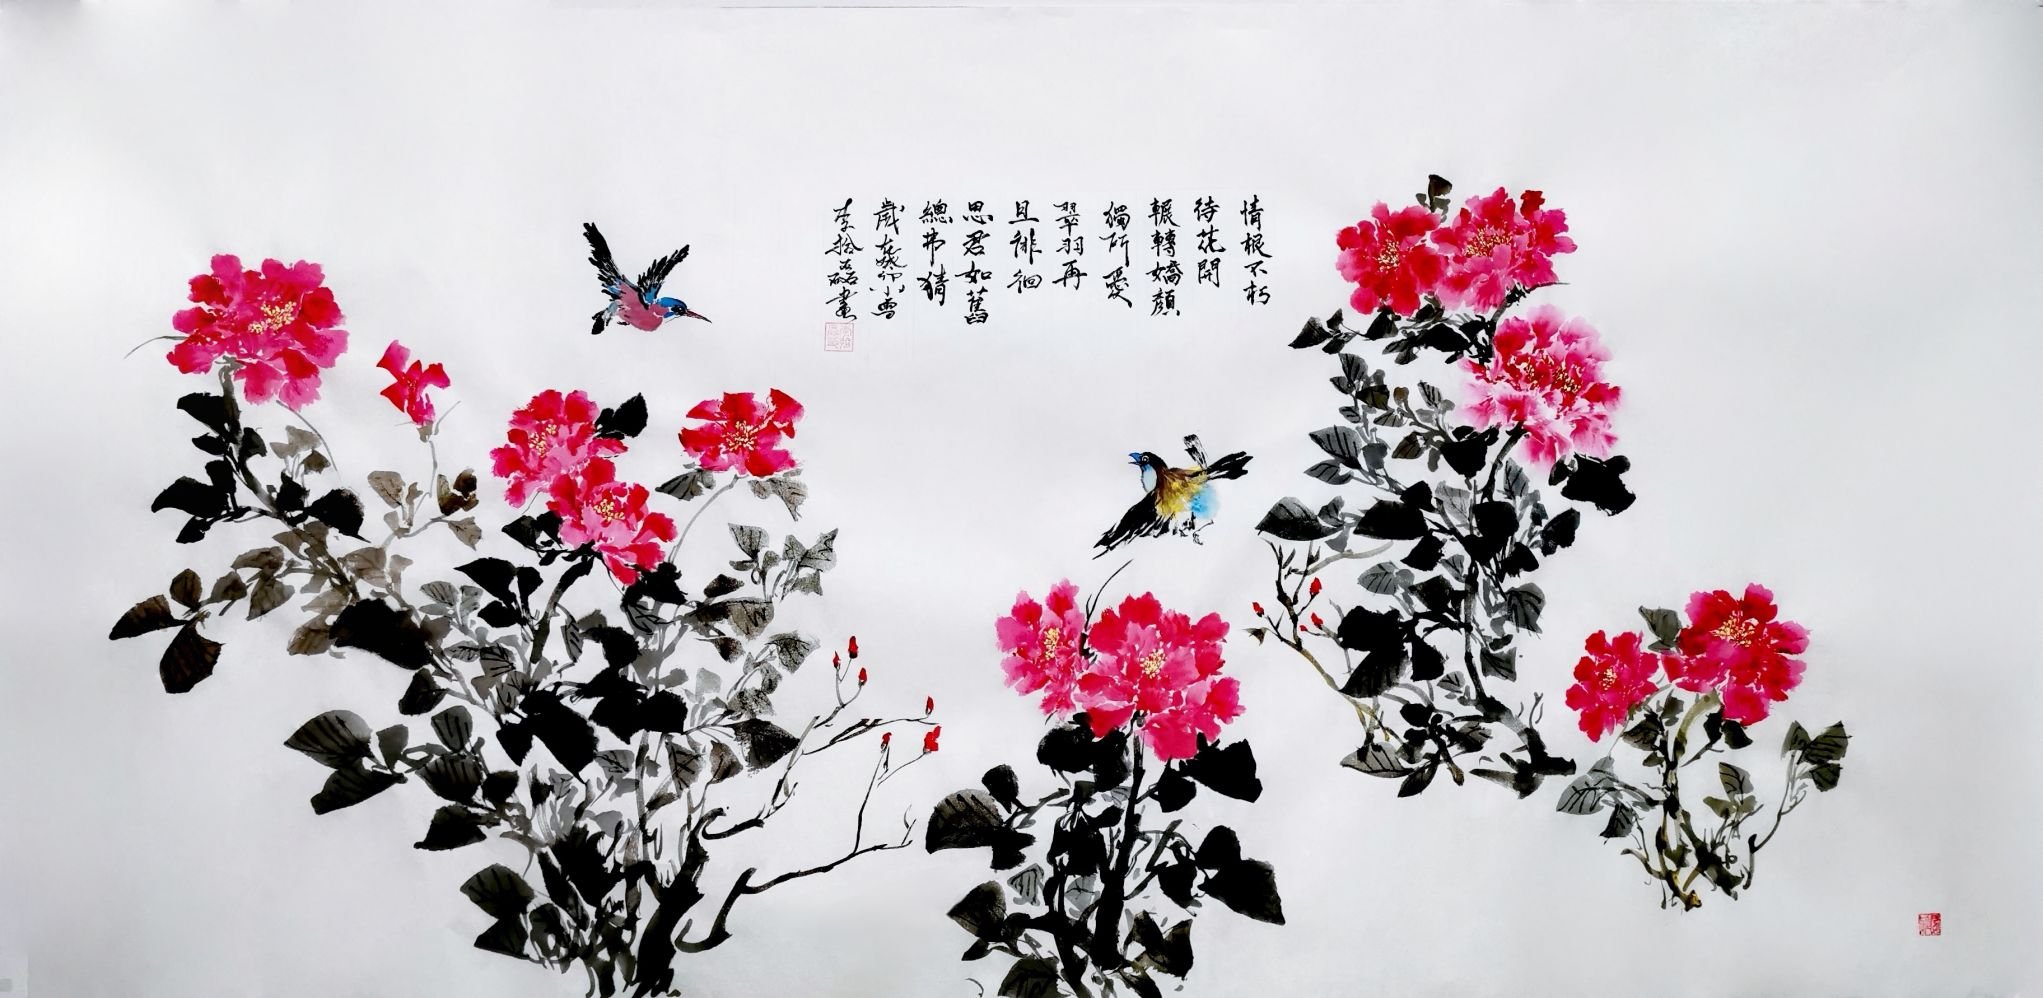 情根不朽
待花開
輾轉嬌顏
獨所愛
翠羽再
且徘徊
思君如舊
總弗猜
歲在癸卯小雪
李拾磊畫